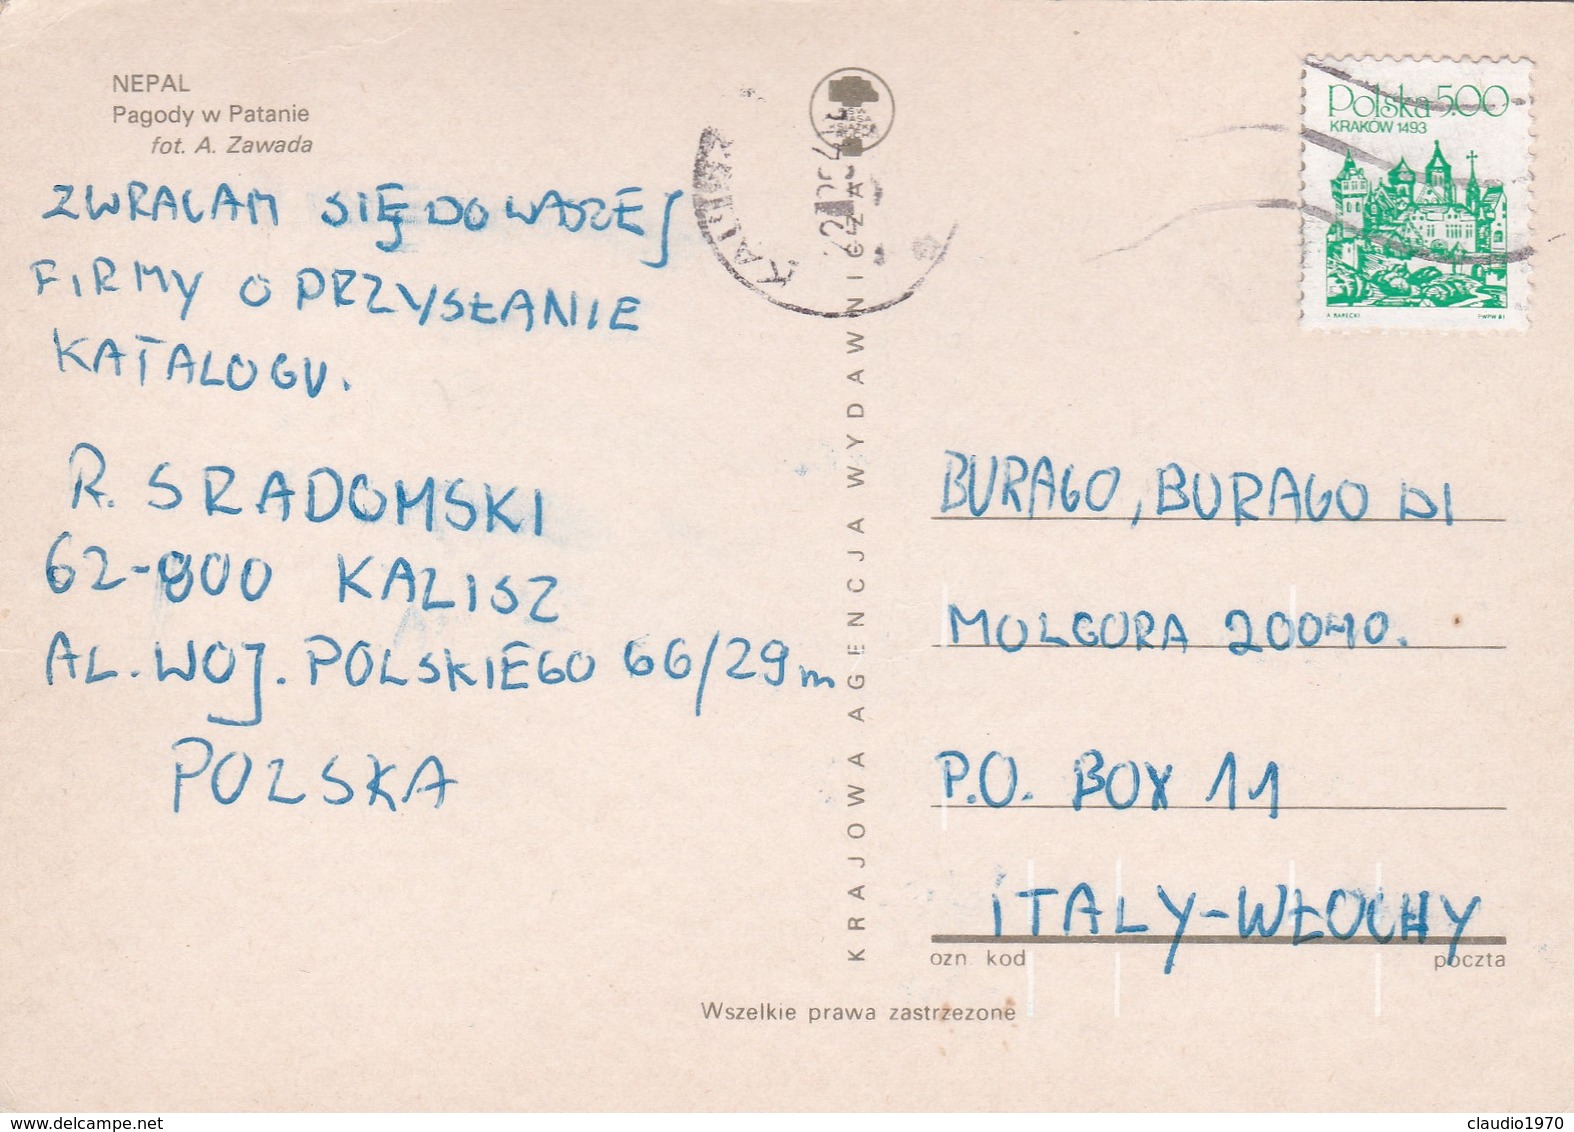 NEPAL
Pagody w Patanie
fot. A. Zawada
ZWRACAM SIĘ DO WASZEJ
FIRMY O PRZYSŁANIE
KATALOGU.
R. SRADOMSKI
62-800 KALISZ
AL. WOJ. POLSKIEGO 66/29 m
POLSKA
KRAJOWA AGENCJA WYDAWNICZA
Polska 5.00
KRAKÓW 1493
A. BARECKI PWPW 81
BURAGO, BURAGO DI
MOLGORA 20040.
P.O. BOX 11
ITALY-WŁOCHY
ozn. kod poczta
Wszelkie prawa zastrzeżone
claudio1970